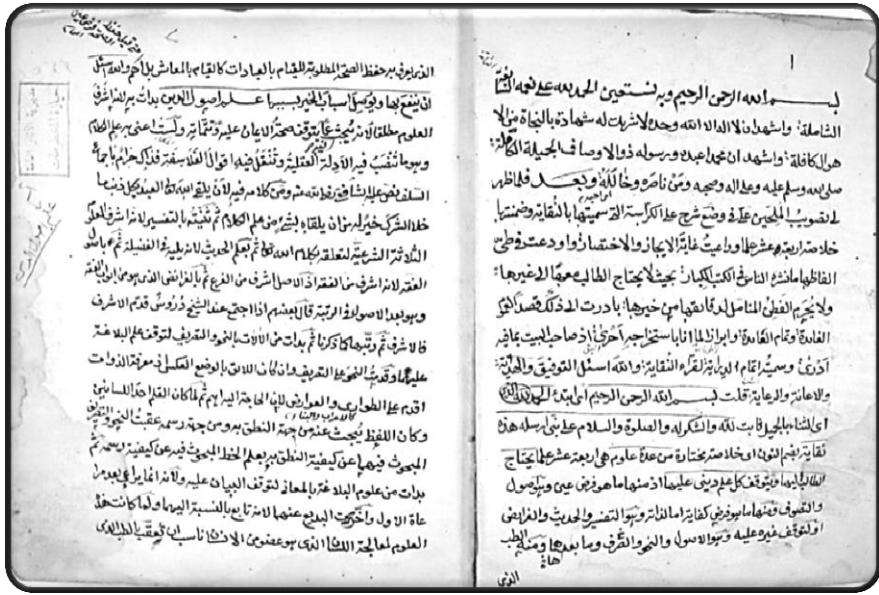 بسم الله الرحمن الرحيم وبه نستعين الحمد لله على نعمه السابغة
الشاملة واشهد ان لا اله الا الله وحده لا شريك له شهادة بالنجاة من الا
هوال كافلة واشهد ان محمدا عبده ورسوله ذو الاوصاف الجميلة الكاملة
صلى الله وسلم عليه وعلى اله وصحبه ومن ناصره وخالله وبعد فلما ظهر
لى تصويب الملحين على فى وضع شرح على الكراسة التى سميتها بالنقاية وضمنتها
خلاصة اربعة عشر علما وراعيت غاية الايجاز والاختصار واودعت فى طى
الفاظها ما نشره الناس فى الكتب الكبار بحيث لا يحتاج الطالب معها الى غيرها
ولا يحرم الفطن المتامل لدقائقها من خيرها بادرت الى ذلك قصدا لعموم
الفائدة وتمام العائدة وابرازا لما انا باستخراجه احرى اذ صاحب البيت بما فيه
ادرى وسميته اتمام الدراية لقراء النقاية والله اسئل التوفيق والهداية
والاعانة والرعاية قلت بسم الله الرحمن الرحيم اى ابتدئ الحمد لله
اى الثناء بالجميل ثابت لله والشكر له والصلوة والسلام على نبى ارسله هذه
نقاية بضم النون اى خلاصة مختارة من عدة علوم هى اربعة عشر علما يحتاج
الطالب اليها ويتوقف كل علم دينى عليها اذ منها ما هو فرض عين وهو اصول
والتصوف ومنها ما هو فرض كفاية اما لذاته وهو التفسير والحديث والفرائض
او لتوقف غيره عليه وهو الاصول والنحو والصرف وما بعدها ومنه الطب
الذى
الذى يعرف به حفظ الصحة المطلوبة للقيام بالعبادات كالقيام بالمعاش بل اهم والله اسئل
ان ينفع بها ويوصل اسباب الخير بسببها علم اصول الدين بدات به لانه اشرف
العلوم مطلقا لانه يبحث عما يتوقف صحة الايمان عليه وتتماته ولست اعنى به علم الكلام
وهو ما تنصب فيه الادلة العقلية وتنقل فيه اقوال الفلاسفة فذلك حرام باجماع
السلف نص عليه الشافعى رضى الله عنه ومن كلامه فيه لان يلقى الله العبد بكل ذنب ما
خلا الشرك خير له من ان يلقاه بشىء من علم الكلام ثم ثنيت بالتفسير لانه اشرف العلوم
الثلاثة الشرعية لتعلقه بكلام الله تعالى ثم بعلم الحديث لانه يليه فى الفضيلة ثم باصول
الفقه لانه اشرف من الفقه اذ الاصل اشرف من الفرع ثم بالفرائض الذى هو من ابواب الفقه
وهو بعد الاصول فى الرتبة قال بعضهم اذا اجتمع عند الشيخ دروس قدم الاشرف
فالاشرف ثم رتبها كما ذكرنا ثم بدات من الالات بالنحو والتصريف لتوقف علم البلاغة
عليهما وقدمت النحو على التصريف وان كان اللائق بالوضع العكس اذ معرفة الذوات
اقدم على الطوارى والعوارض لان الحاجة اليه اهم ثم لما كان القلم احد اللسانين
وكان اللفظ يبحث عنه من جهة النطق به ومن جهة رسمه عقبت النحو والتصريف
المبحوث فيهما عن كيفية النطق به بعلم الخط المبحوث فيه عن كيفية رسمه ثم
بدات من علوم البلاغة بالمعانى لتوقف البيان عليه ولانه انما يراعى بعد مرا
عاة الاول واخرت البديع عنهما لانه تابع بالنسبة اليهما ولما كانت هذه
العلوم لمعالجة اللسان الذى هو عضو من الانسان ناسب ان تعقب بالطب الذى